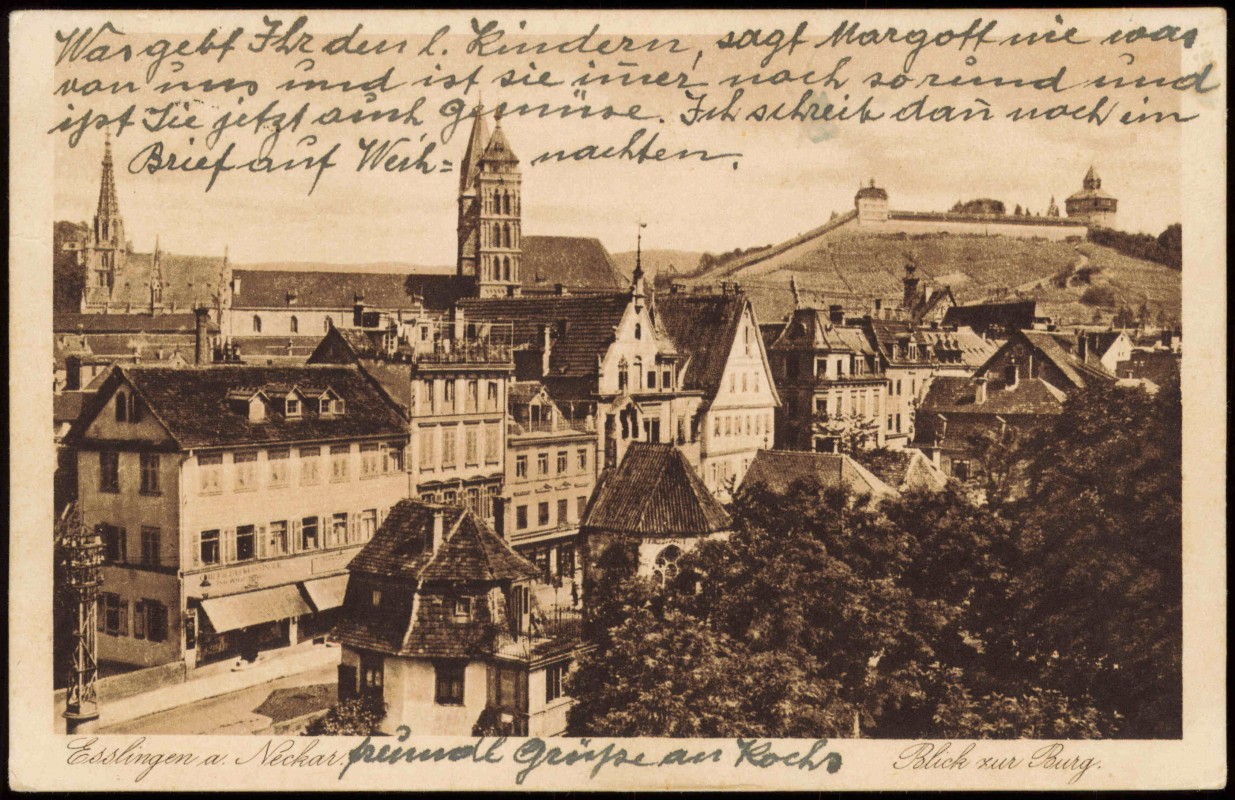 Was gebt Ihr den l. Kindern, sagt Margott nie was
von uns und ist sie im̄er noch so rund und
ißt Sie jetzt auch gemüse. Ich schreib dan̄ noch im
Brief auf Weih= nachten.
Esslingen a. Neckar. freundl Grüße an Kochs Blick zur Burg.